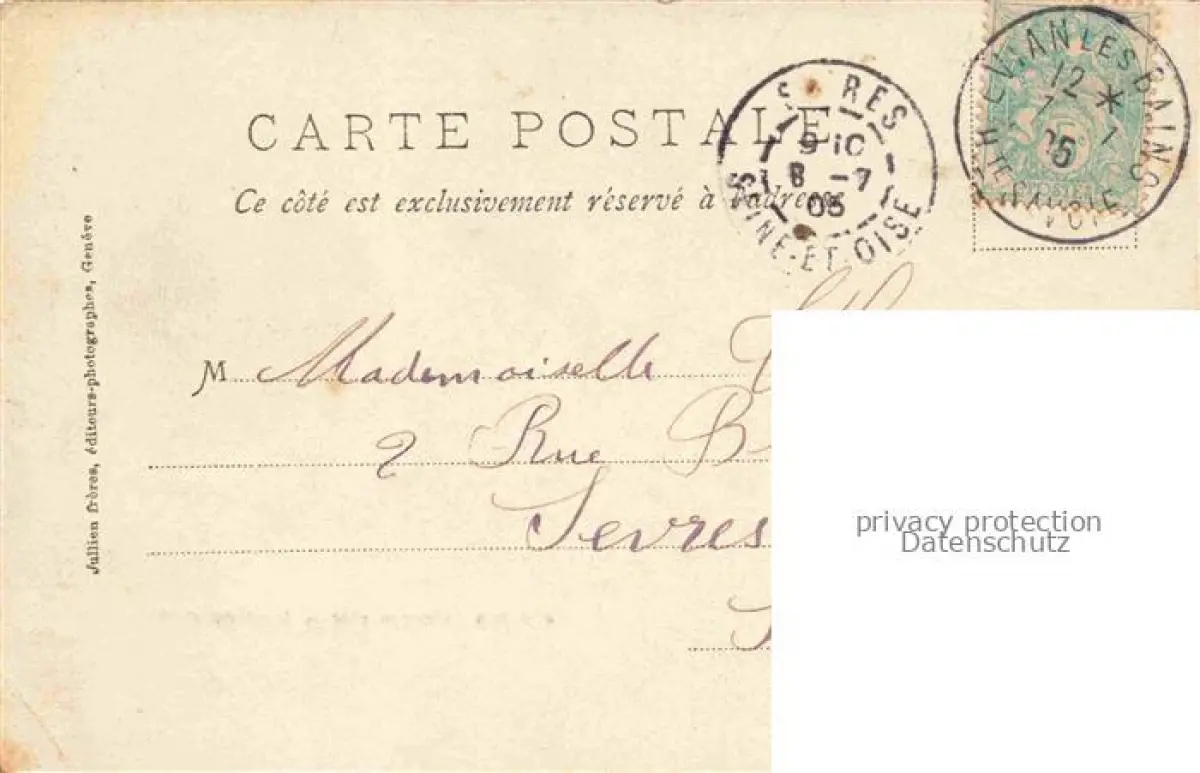 CARTE POSTALE
Ce côté est exclusivement réservé à l'adresse
EVIAN LES BAINS
12
7
05
HTE SAVOIE
S RES
9 10
8 -7
05
SEINE-ET-OISE
M Mademoiselle
2 Rue B
Sevres
Jullien frères, éditeurs-photographes, Genève
privacy protection
Datenschutz